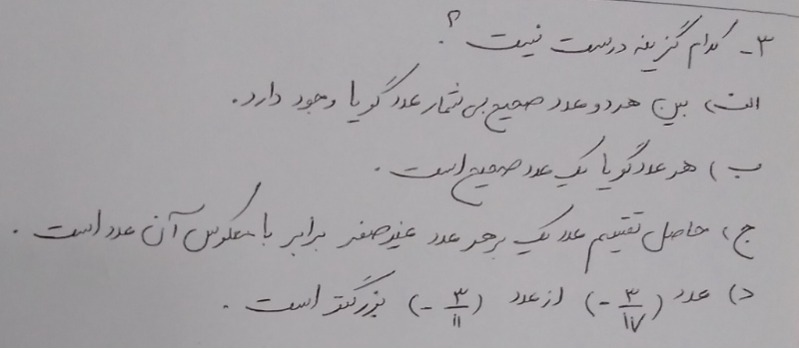 ۳- کدام گزینه درست نیست ؟
الف) بین هر دو عدد صحیح بی شمار عدد گویا وجود دارد.
ب) هر عدد گویا یک عدد صحیح است.
ج) حاصل تقسیم عدد یک بر هر عدد غیر صفر برابر با معکوس آن عدد است.
د) عدد (-۳/۱۷) از عدد (-۳/۱۱) بزرگتر است.